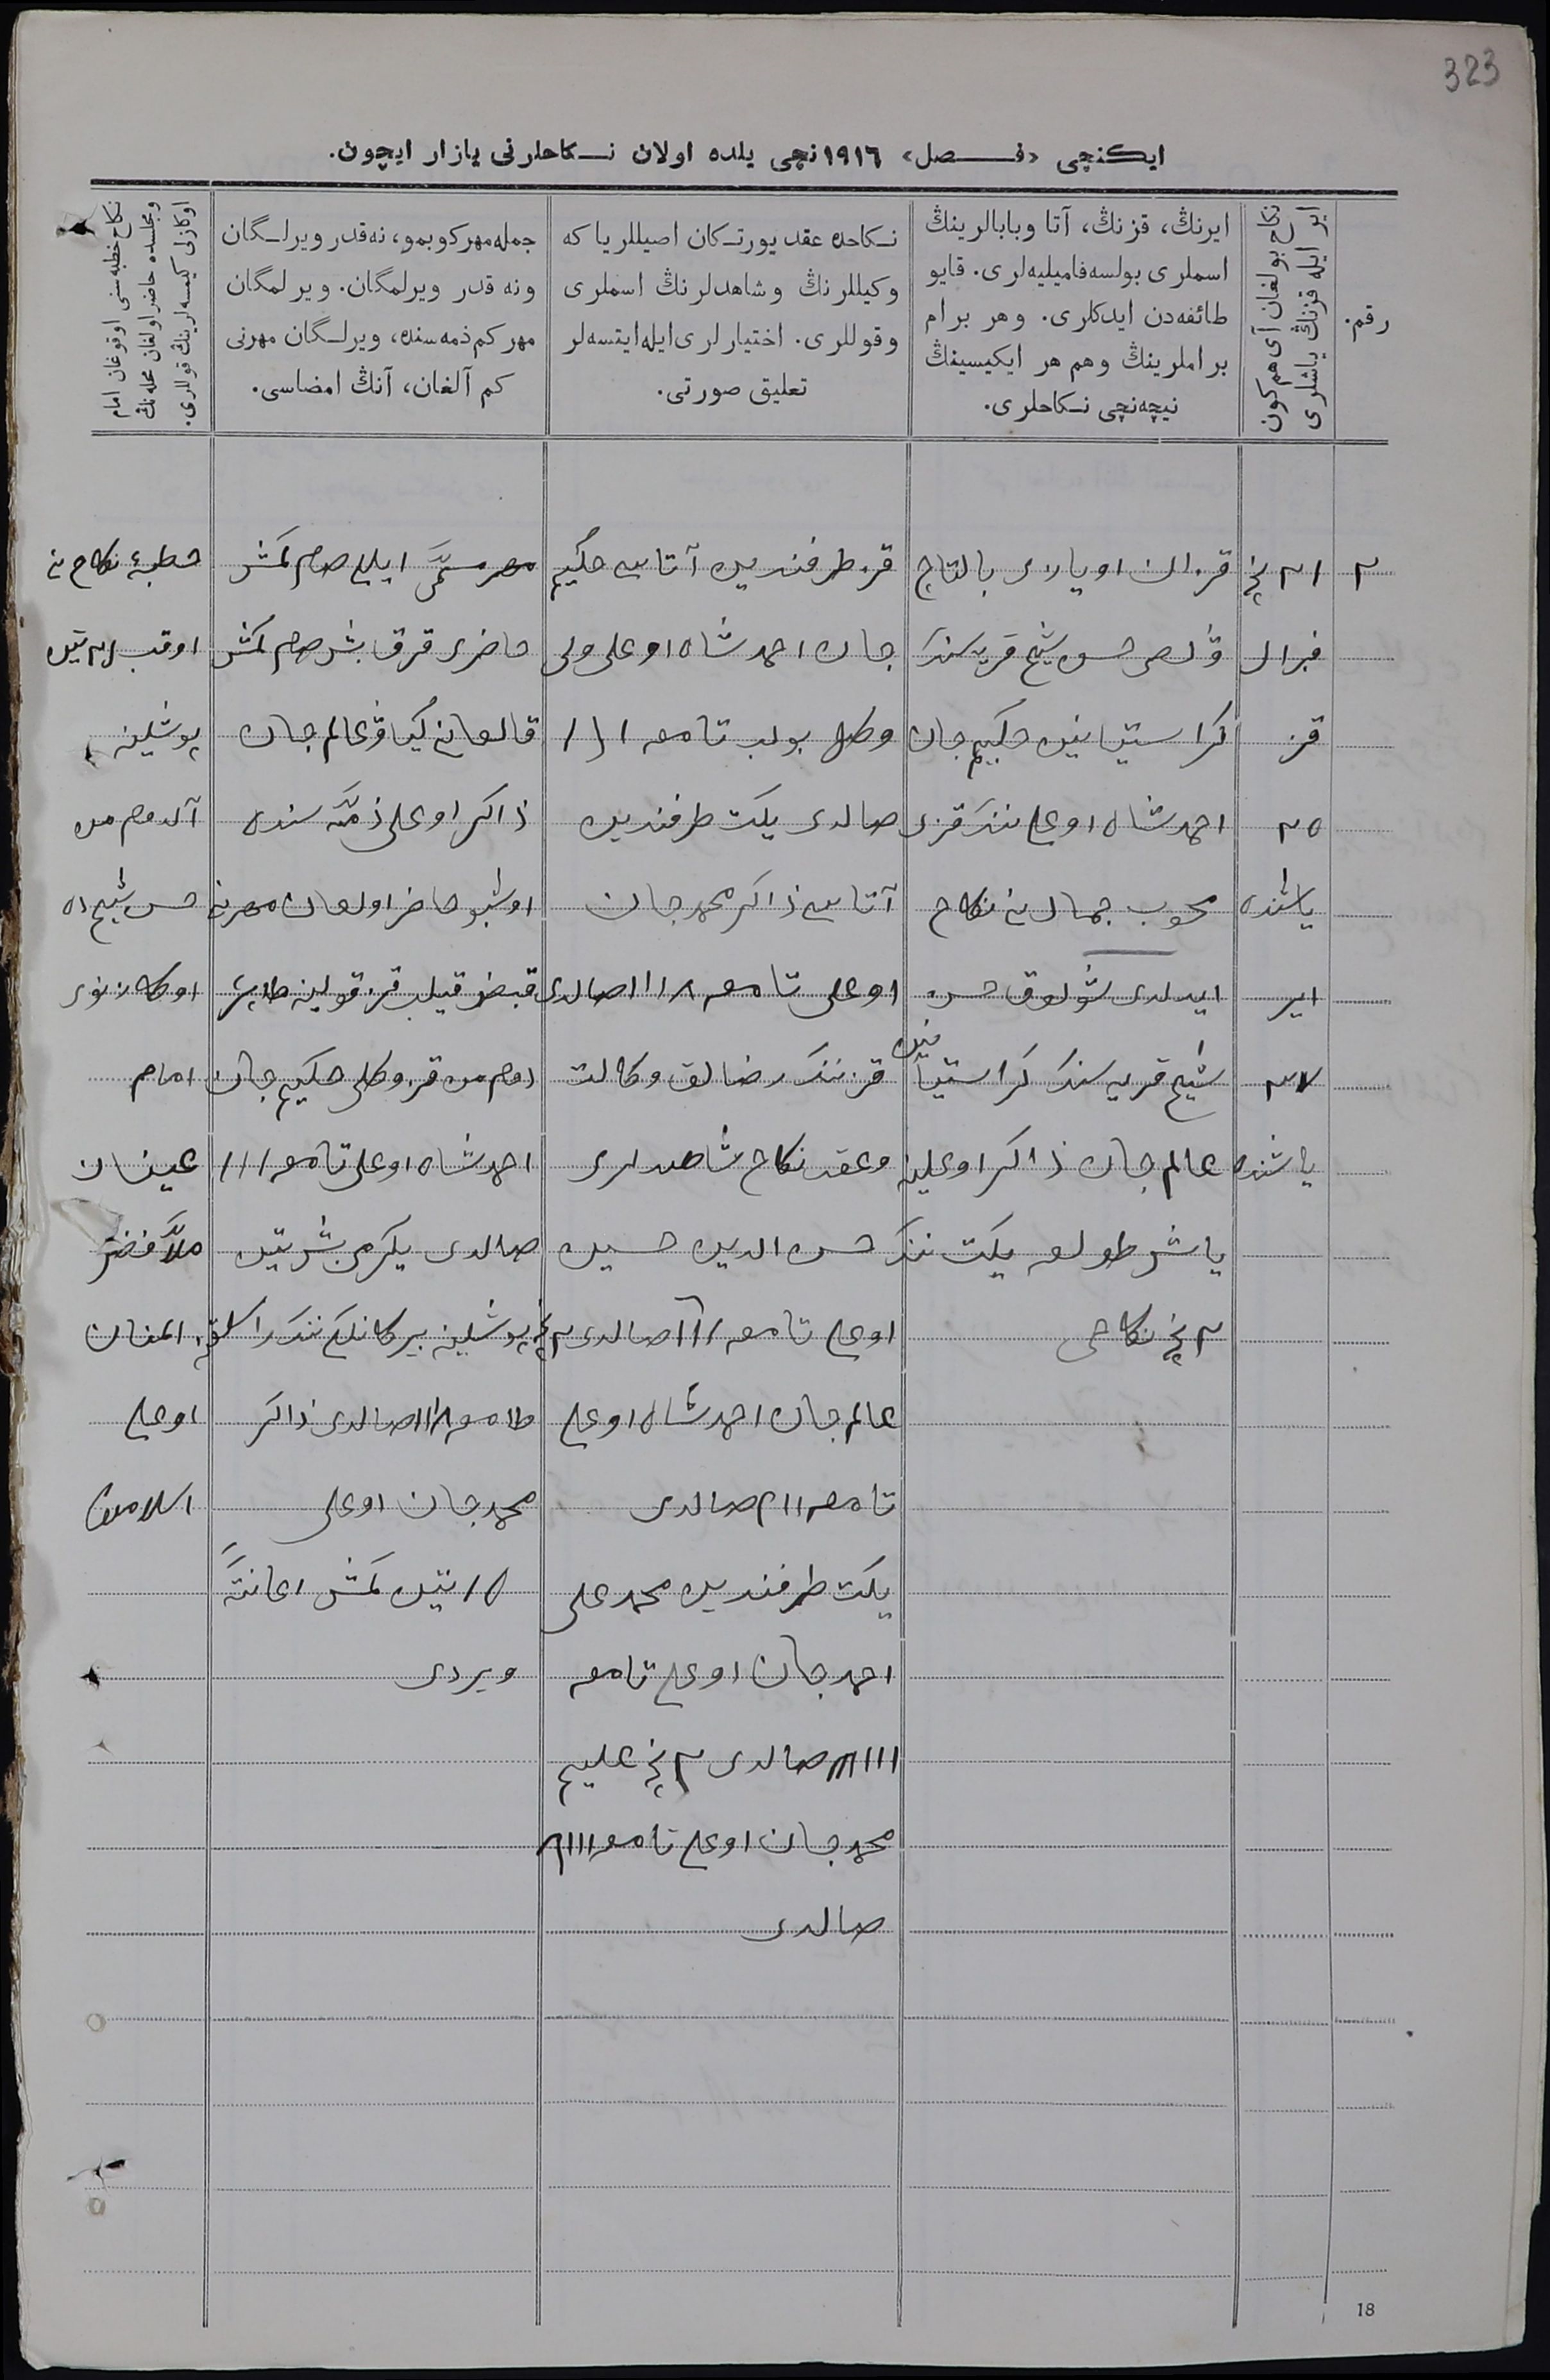 323
ایکنچی «فصل» ١٩١٦ نچی یلده اولان نکاحلرنی یازار ایچون.
رقم.
نکاح بولغان آی هم کون
ایر ایله قزنڭ یاشلری
ایرنڭ، قزنڭ، آتا وبابالرینڭ
اسملری بولسه فامیلیه‌لری. قایو
طائفه‌دن ایدکلری. وهر برام
براملرینڭ وهم هر ایکیسینڭ
نیچه‌نچی نکاحلری.
نکاحده عقد یورتکان اصیللر یا که
وکیللرنڭ وشاهدلرنڭ اسملری
وقوللری. اختیارلری ایله ایتسه‌لر
تعلیق صورتی.
جمله مهر کوبمو، نه‌قدر ویرلـگان
ونه قدر ویرلمگان. ویرلمگان
مهر کم ذمه‌سنده، ویرلـگان مهرنی
کم آلغان، آنڭ امضاسی.
نکاح خطبه‌سنی اوقوغان امام
ومجلسده حاضر اولغان محله‌نڭ
اوکازلی کیمسه‌لرینڭ قوللری.
٢
٢١ نچی
فبرال
قز
٢٥
یاشنده
ایر
٣٧
یاشنده
قزان اویازی بالتاچ
وڵصی حسن شیخ قریه سنڭ
کراستیانین حکیم جان
احمدشاه اوغلی ننڭ قزی
محبوب جمال نی نکاح
ایدلدی شولوق حسن
شیخ قریه سنڭ کراستیانین
عالم جان ذاکر اوغلینه
یاش طولو یکت ننڭ
٢ نچی نکاحی
قز طرفندین آتاسی حکیم
جان احمدشاه اوغلی ولی
وکیل بولب تامغه ١٨١
صالدی یکت طرفندین
آتاسی ذاکر محمدجان
اوغلی تامغه ١١١٨ صالدی
قزننڭ رضالق وکالت
وعقد نکاح شاهدلری
حسن الدین حسین
اوغلی تامغه ١٨٨ صالدی ٢ نچی
عالم جان احمدشاه اوغلی
تامغه ١١٨ صالدی
یکت طرفندین محمد علی
احمدجان اوغلی تامغه
صالدی ٢ نچی علیم
محمدجان اوغلی تامغه
صالدی
مهر مسمّی ایللی صوم کمش
حاضری قرق بش صوم کمش
قالغانی کیاو عالم جان
ذاکر اوغلی ذمّه سنده
اوشبو حاضر اولغان مهرنی
قبض قیلب قز قولینه طابشر
دم من قز وکیلی حکیم جان
احمدشاه اوغلی تامغه ١١١
صالدی یکرمی بش تین
پوشلینه بیرکانلکم ننڭ راسلقی
طامغه ١١١٨ صالدی ذاکر
محمدجان اوغلی
١٥ تین کمش اعانتگه
ویردی
خطبۀ نکاح نی
اوقب ٢٥ تین
پوشلینه
آلدم من
حسن شیخ ده
اوکازنوی
امام
عینان
ملاّ فضل
المنان
اوغلی
اسلاموف
18